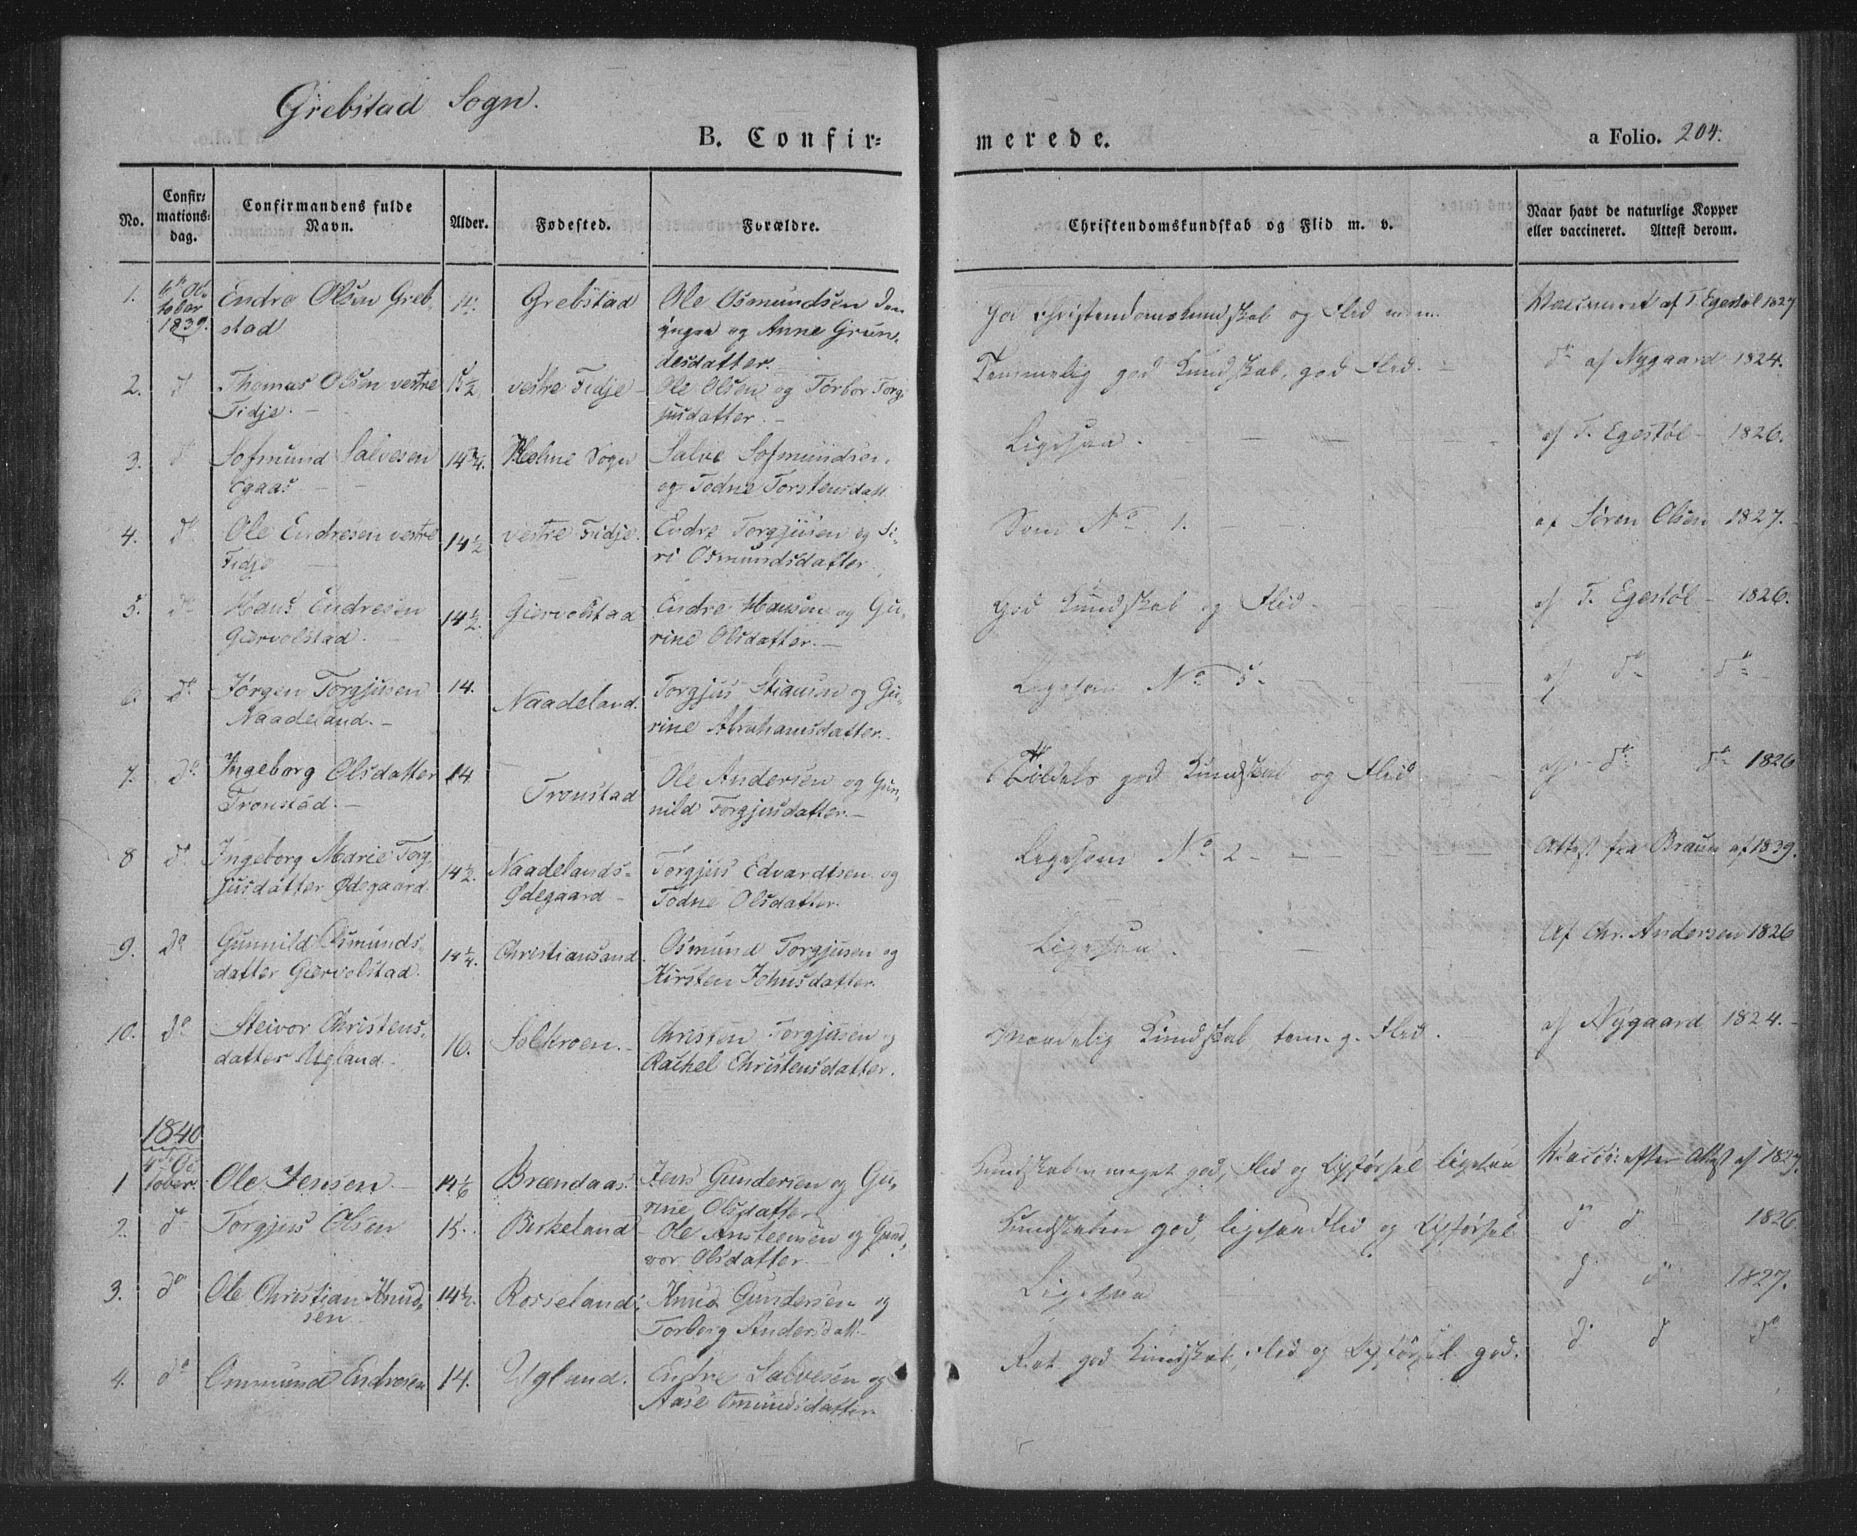 Grebstad Sogn.
B. Confir=
merede.
a Folio. 204.
No.
Confir=
mations=
dag.
Confirmandens fulde
Navn.
Alder.
Fødested.
Forældre.
Christendomskundskab og Flid m. v.
Naar havt de naturlige Kopper
eller vaccineret. Attest derom.
1. 6te Ok-
tober
1839.
Endre Olsen Greb-
stad
Grebstad
Ole Osmundsen den
yngre og Anne Grun-
desdatter.
God Christendomskundskab og Flid
Vaccineret af T. Egestøl 1827
2. do Thomas Olsen vestre
Fidje. —
15½
vestre Fidje —
Ole Olsen og Torbor Torg-
jusdatter. —
Temmelig god Kundskab, god Flid. —
do af Nygaard 1824.
3. do Sofmund Salvesen
Egaas —
14¾.
Holme Sogn
Salve Sofmundsen
og Todne Torstensdatt.
Ligesaa. — — — — —
af T. Egestøl — 1826.
4. do Ole Endresen vestre
Fidje —
14½
vestre Fidje.
Endre Torgjusen og Si-
ri Osmundsdatter
Som No 1. —
af Søren Olsen 1827. —
5. do Hans Endresen
Giervolstad. —
14½.
Giervolstad
Endre Hansen og Gu-
rine Olsdatter. —
God Kundskab og Flid. —
af T. Egestøl — 1826.
6. do Jørgen Torgjusen
Naadeland. —
14.
Naadeland.
Torgjus Stiansen og Gu-
rine Abrahamsdatter. —
Ligesom No 5 —
af do do —
7. do Ingeborg Olsdatter
Tronstad. —
14
Tronstad
Ole Andersen og Gun-
nild Torgjusdatter. —
Tildels god Kundskab og Flid —
af — do do 1826
8 do Ingeborg Marie Torg-
jusdatter Ødegaard.
14½.
Naadelands-
Ødegaard —
Torgjus Edvardtsen og
Todne Olsdatter.
Ligesom No 2 — — —
Attest fra Braun af 1839.
9. do Gunnild Osmunds-
datter Giervolstad.
14¼.
Christiansand.
Osmund Torgjusen og
Kirsten Johnsdatter.
Ligesaa. — —
Af Chr. Andersen 1826
10. do Steivor Christens-
datter Ugland. —
16.
Solkroen. —
Christen Torgjusen og
Rachel Christensdatter.
Maadelig Kundskab, tem. g. Flid.
af Nygaard 1824. —
1840
4de Oc-
tober.
1 Ole Jensen —
14⅙
Brændaas.
Jens Gundersen og Gu-
rine Olsdatter
Kundskaben meget god, Flid og Opførsel ligesaa
Vacc: efter Attest af 1827.
2. do Torgjus Olsen
15.
Birkeland —
Ole Ansteensen og Gun-
vor Olsdatter. —
Kundskaben god, ligesaa Flid og Opførsel
do do 1826
3. do Ole Christian Knud-
sen.
14½.
Rosseland
Knud Gundersen og
Torborg Andersdatt. —
Ligesaa
do do 1827.
4. do Ommund Endresen
14.
Ugland.
Endre Salvesen og
Aase Omundsdatter
Ret god Kundskab, Flid og Opførsel god.
do do do